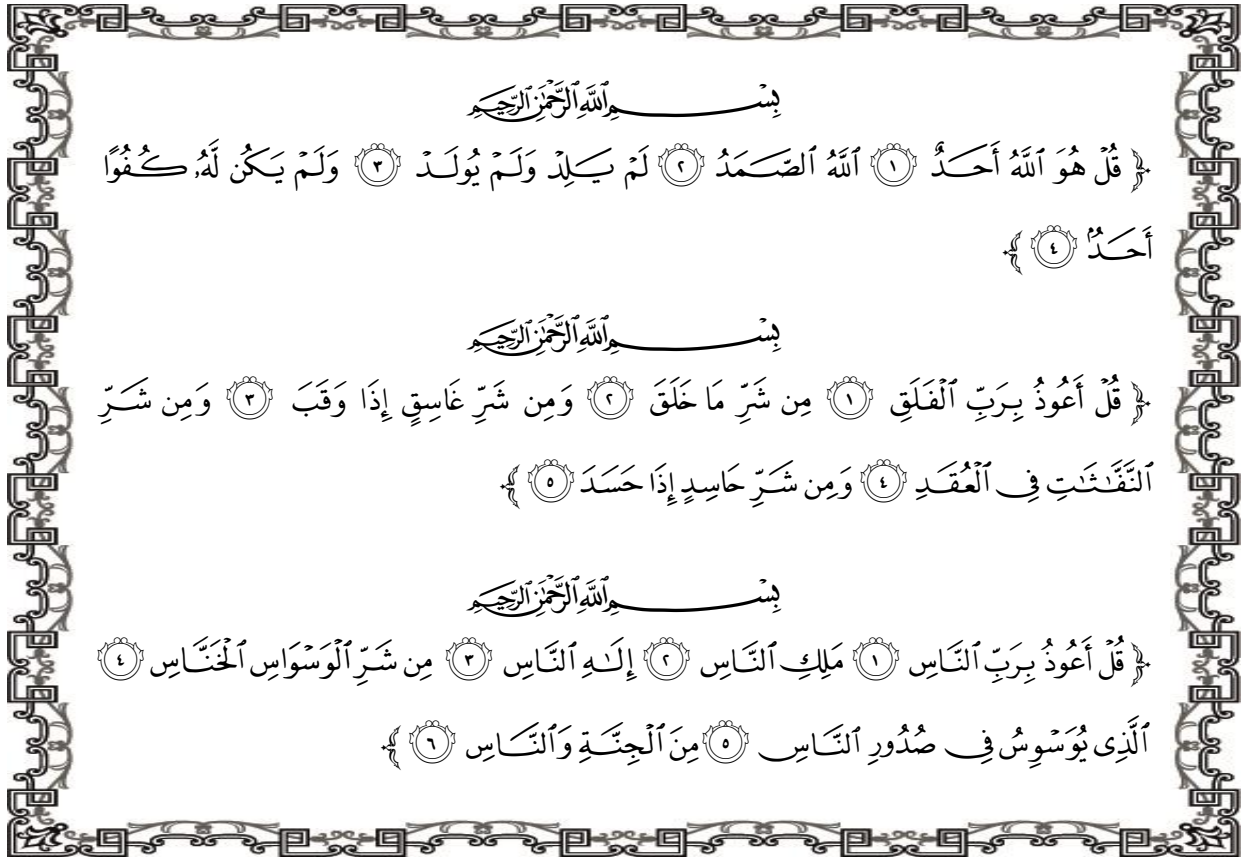 بِسْمِ ٱللَّهِ ٱلرَّحْمَٰنِ ٱلرَّحِيمِ
﴿ قُلْ هُوَ ٱللَّهُ أَحَدٌ ١ ٱللَّهُ ٱلصَّمَدُ ٢ لَمْ يَلِدْ وَلَمْ يُولَدْ ٣ وَلَمْ يَكُن لَّهُۥ كُفُوًا
أَحَدٌۢ ٤ ﴾
بِسْمِ ٱللَّهِ ٱلرَّحْمَٰنِ ٱلرَّحِيمِ
﴿ قُلْ أَعُوذُ بِرَبِّ ٱلْفَلَقِ ١ مِن شَرِّ مَا خَلَقَ ٢ وَمِن شَرِّ غَاسِقٍ إِذَا وَقَبَ ٣ وَمِن شَرِّ
ٱلنَّفَّٰثَٰتِ فِى ٱلْعُقَدِ ٤ وَمِن شَرِّ حَاسِدٍ إِذَا حَسَدَ ٥ ﴾
بِسْمِ ٱللَّهِ ٱلرَّحْمَٰنِ ٱلرَّحِيمِ
﴿ قُلْ أَعُوذُ بِرَبِّ ٱلنَّاسِ ١ مَلِكِ ٱلنَّاسِ ٢ إِلَٰهِ ٱلنَّاسِ ٣ مِن شَرِّ ٱلْوَسْوَاسِ ٱلْخَنَّاسِ ٤
ٱلَّذِى يُوَسْوِسُ فِى صُدُورِ ٱلنَّاسِ ٥ مِنَ ٱلْجِنَّةِ وَٱلنَّاسِ ٦ ﴾